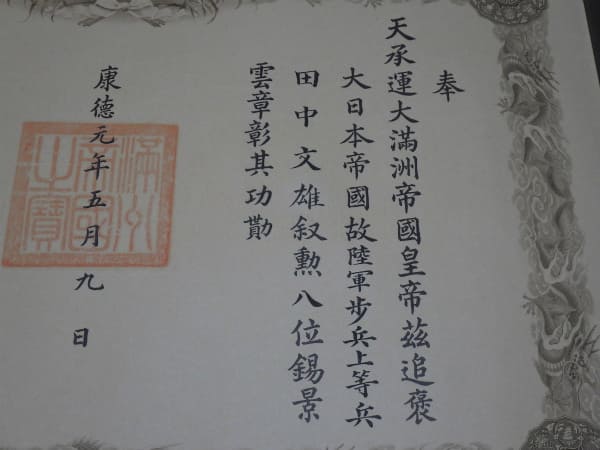 奉
天承運大滿洲帝國皇帝茲追褒
大日本帝國故陸軍步兵上等兵
田中文雄叙勲八位錫景
雲章彰其功勛
康德元年五月九日
滿洲
帝國
之寶